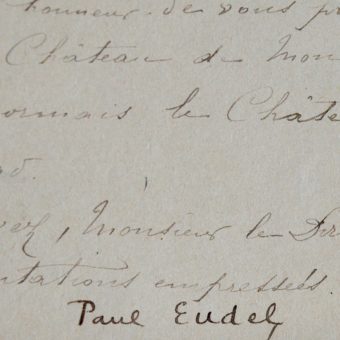 honneur de vous pr
Château de Mon
ormais le Châte
vez, Monsieur le Dir
ntations empressées.
Paul Eudel